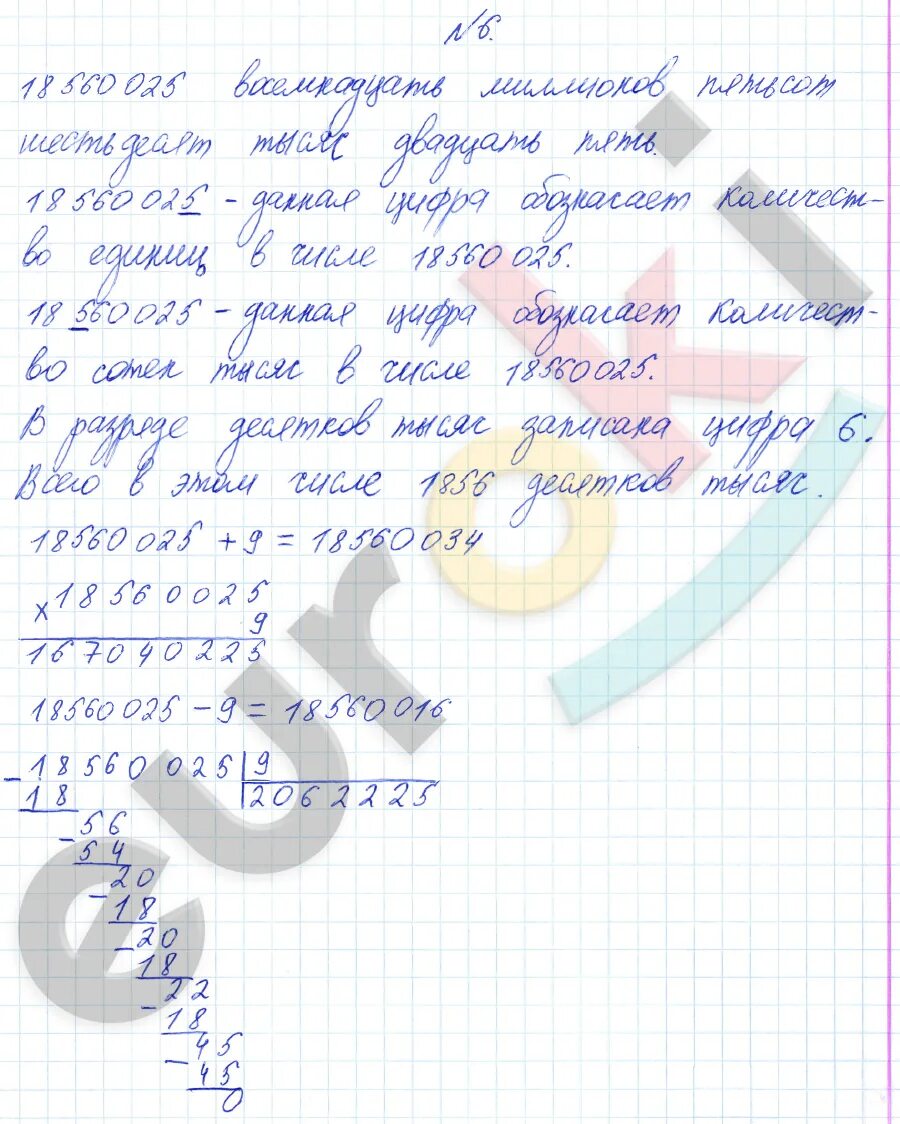 №6.
18560025 восемнадцать миллионов пятьсот
шестьдесят тысяч двадцать пять.
18560025 - данная цифра обозначает количест-
во единиц в числе 18560025.
18560025 - данная цифра обозначает количест-
во сотен тысяч в числе 18560025.
В разряде десятков тысяч записана цифра 6.
Всего в этом числе 1856 десятков тысяч.
18560025 + 9 = 18560034
× 18560025
9
167040225
18560025 - 9 = 18560016
- 18560025 | 9
18 | 2062225
- 56
54
- 20
18
- 20
18
- 22
18
- 45
45
0
euroki